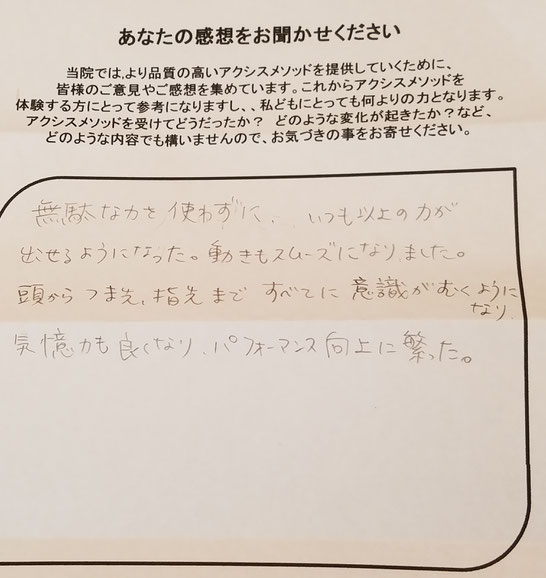 あなたの感想をお聞かせください
当院では、より品質の高いアクシスメソッドを提供していくために、
皆様のご意見やご感想を集めています。これからアクシスメソッドを
体験する方にとって参考になりますし、、私どもにとっても何よりの力となります。
アクシスメソッドを受けてどうだったか？ どのような変化が起きたか？など、
どのような内容でも構いませんので、お気づきの事をお寄せください。
無駄な力を使わずに、、いつも以上の力が
出せるようになった。動きもスムーズになりました。
頭からつま先、指先まで すべてに意識がむくように
なり、
気憶力も良くなり、パフォーマンス向上に繋った。